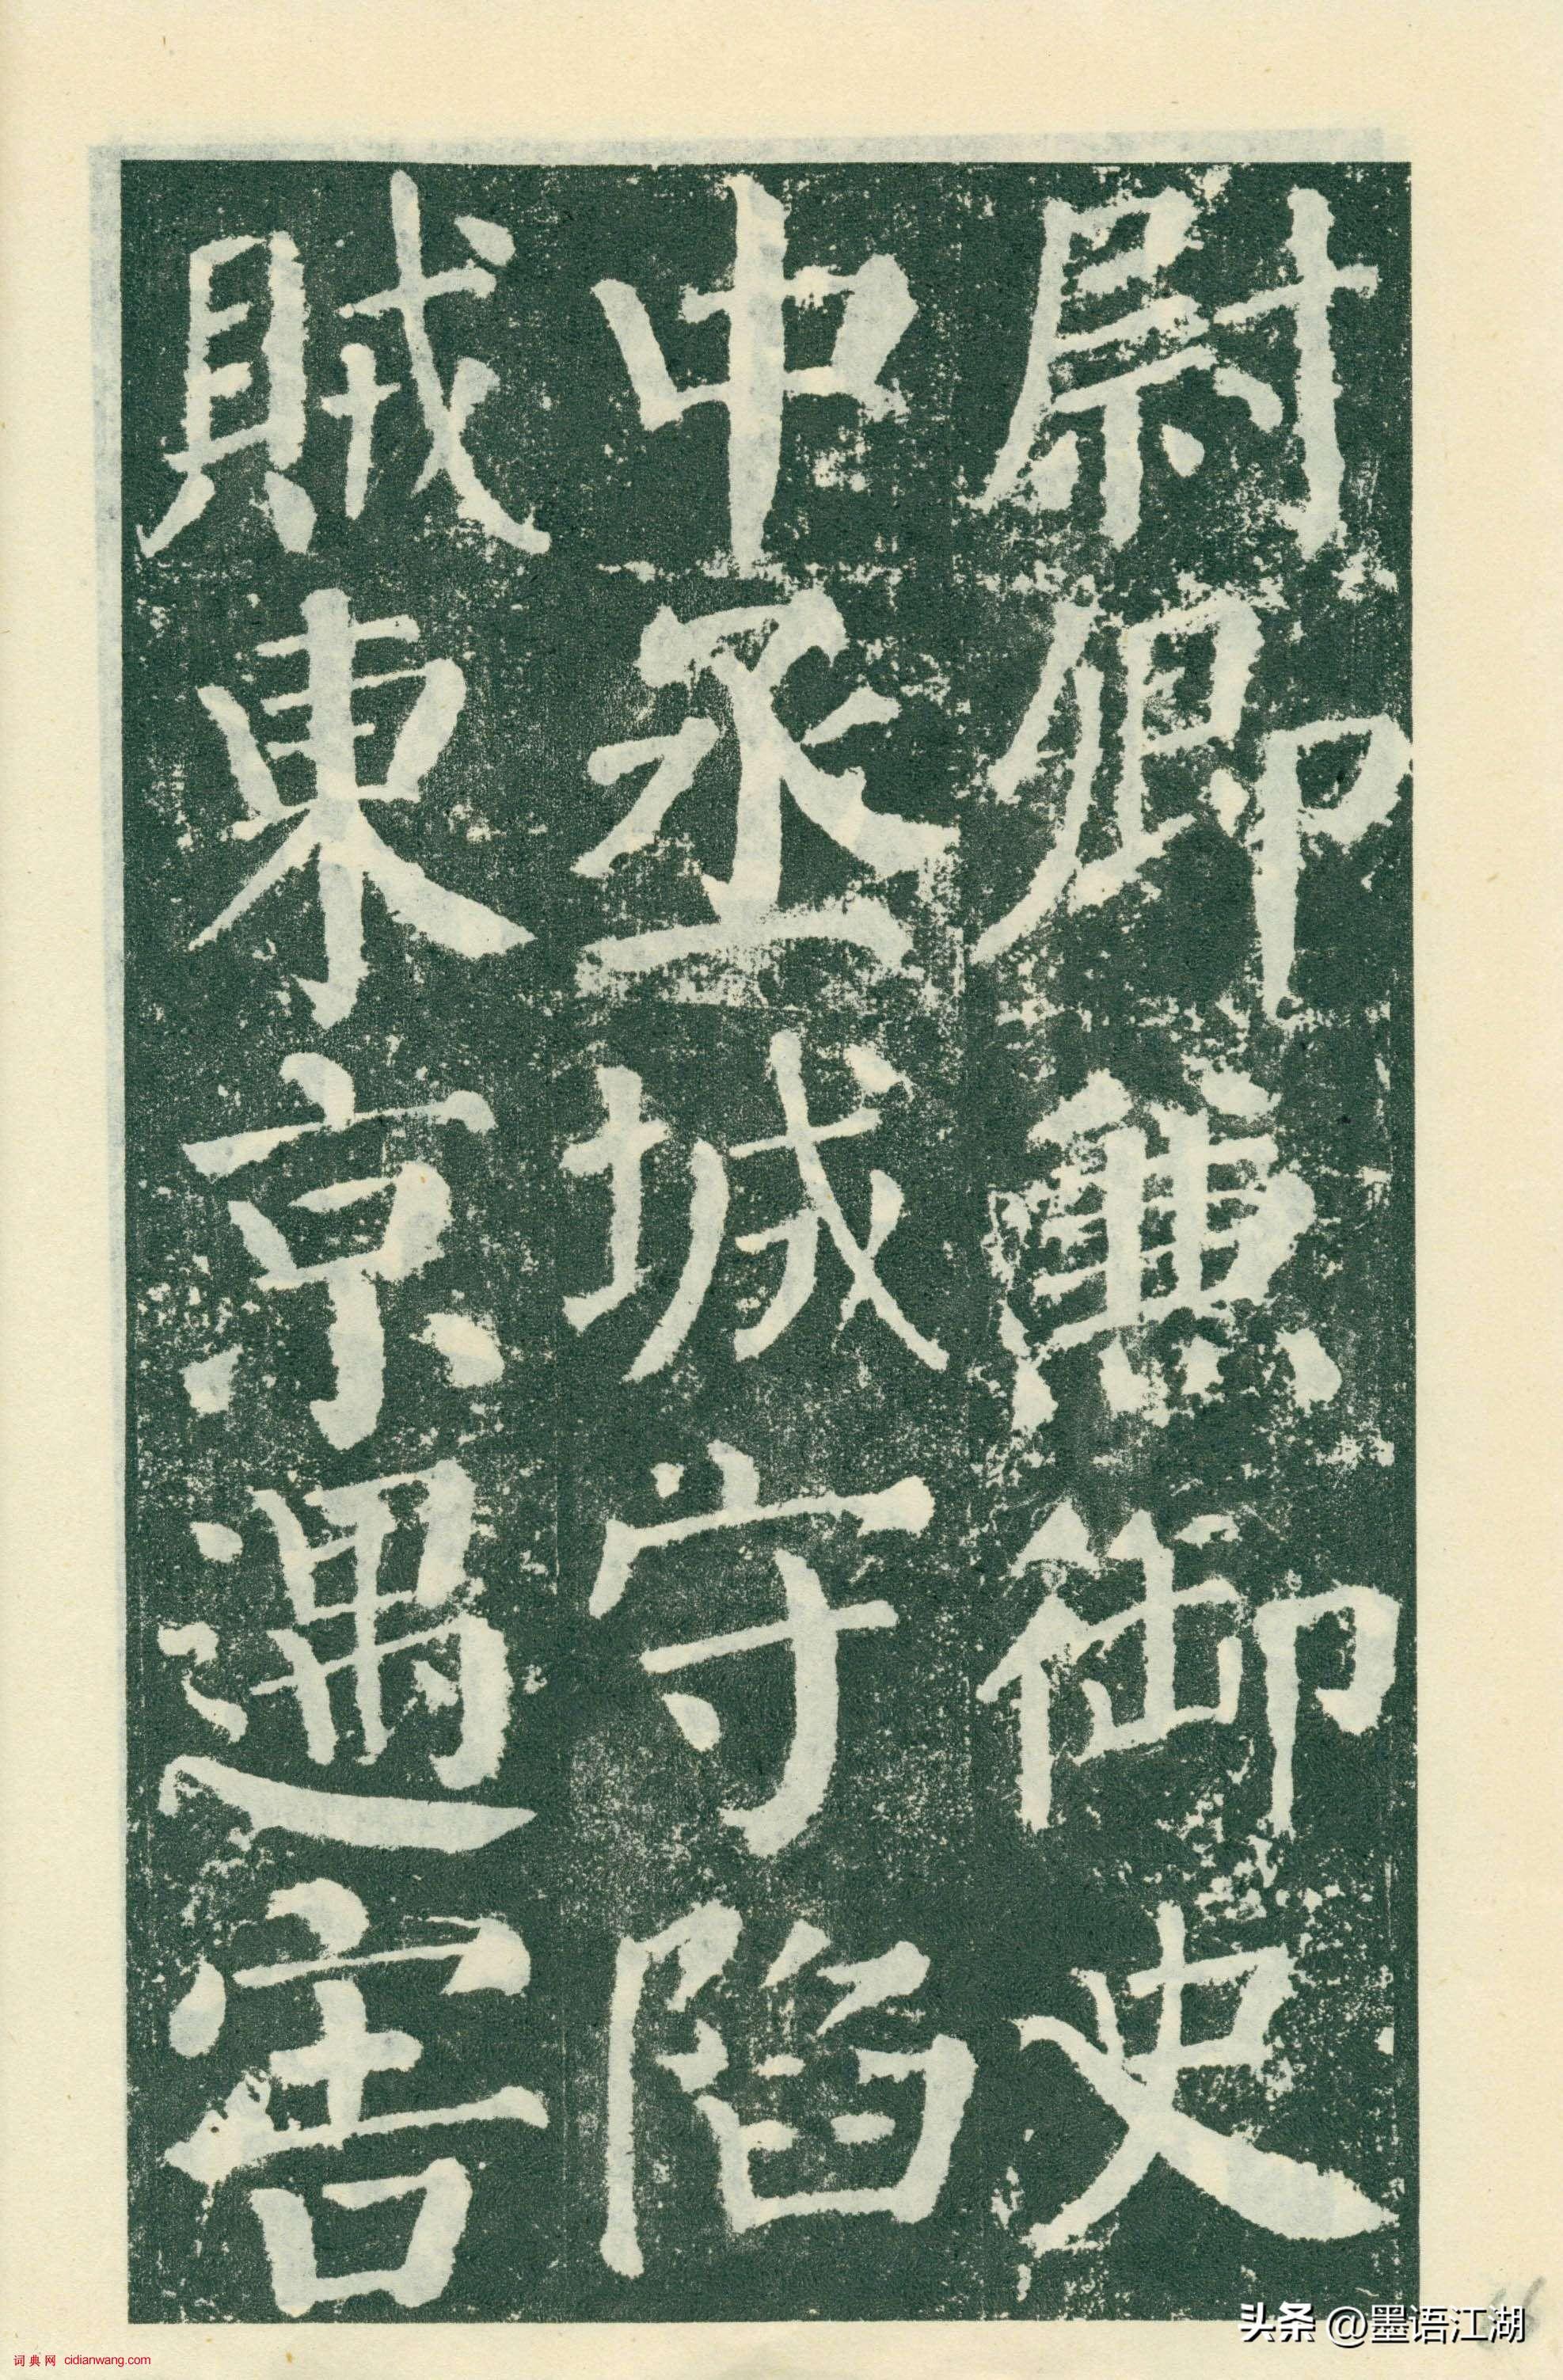 尉卿兼御史
中丞城守陷
賊東京遇害
头条 @墨语江湖
词典网 cidianwang.com